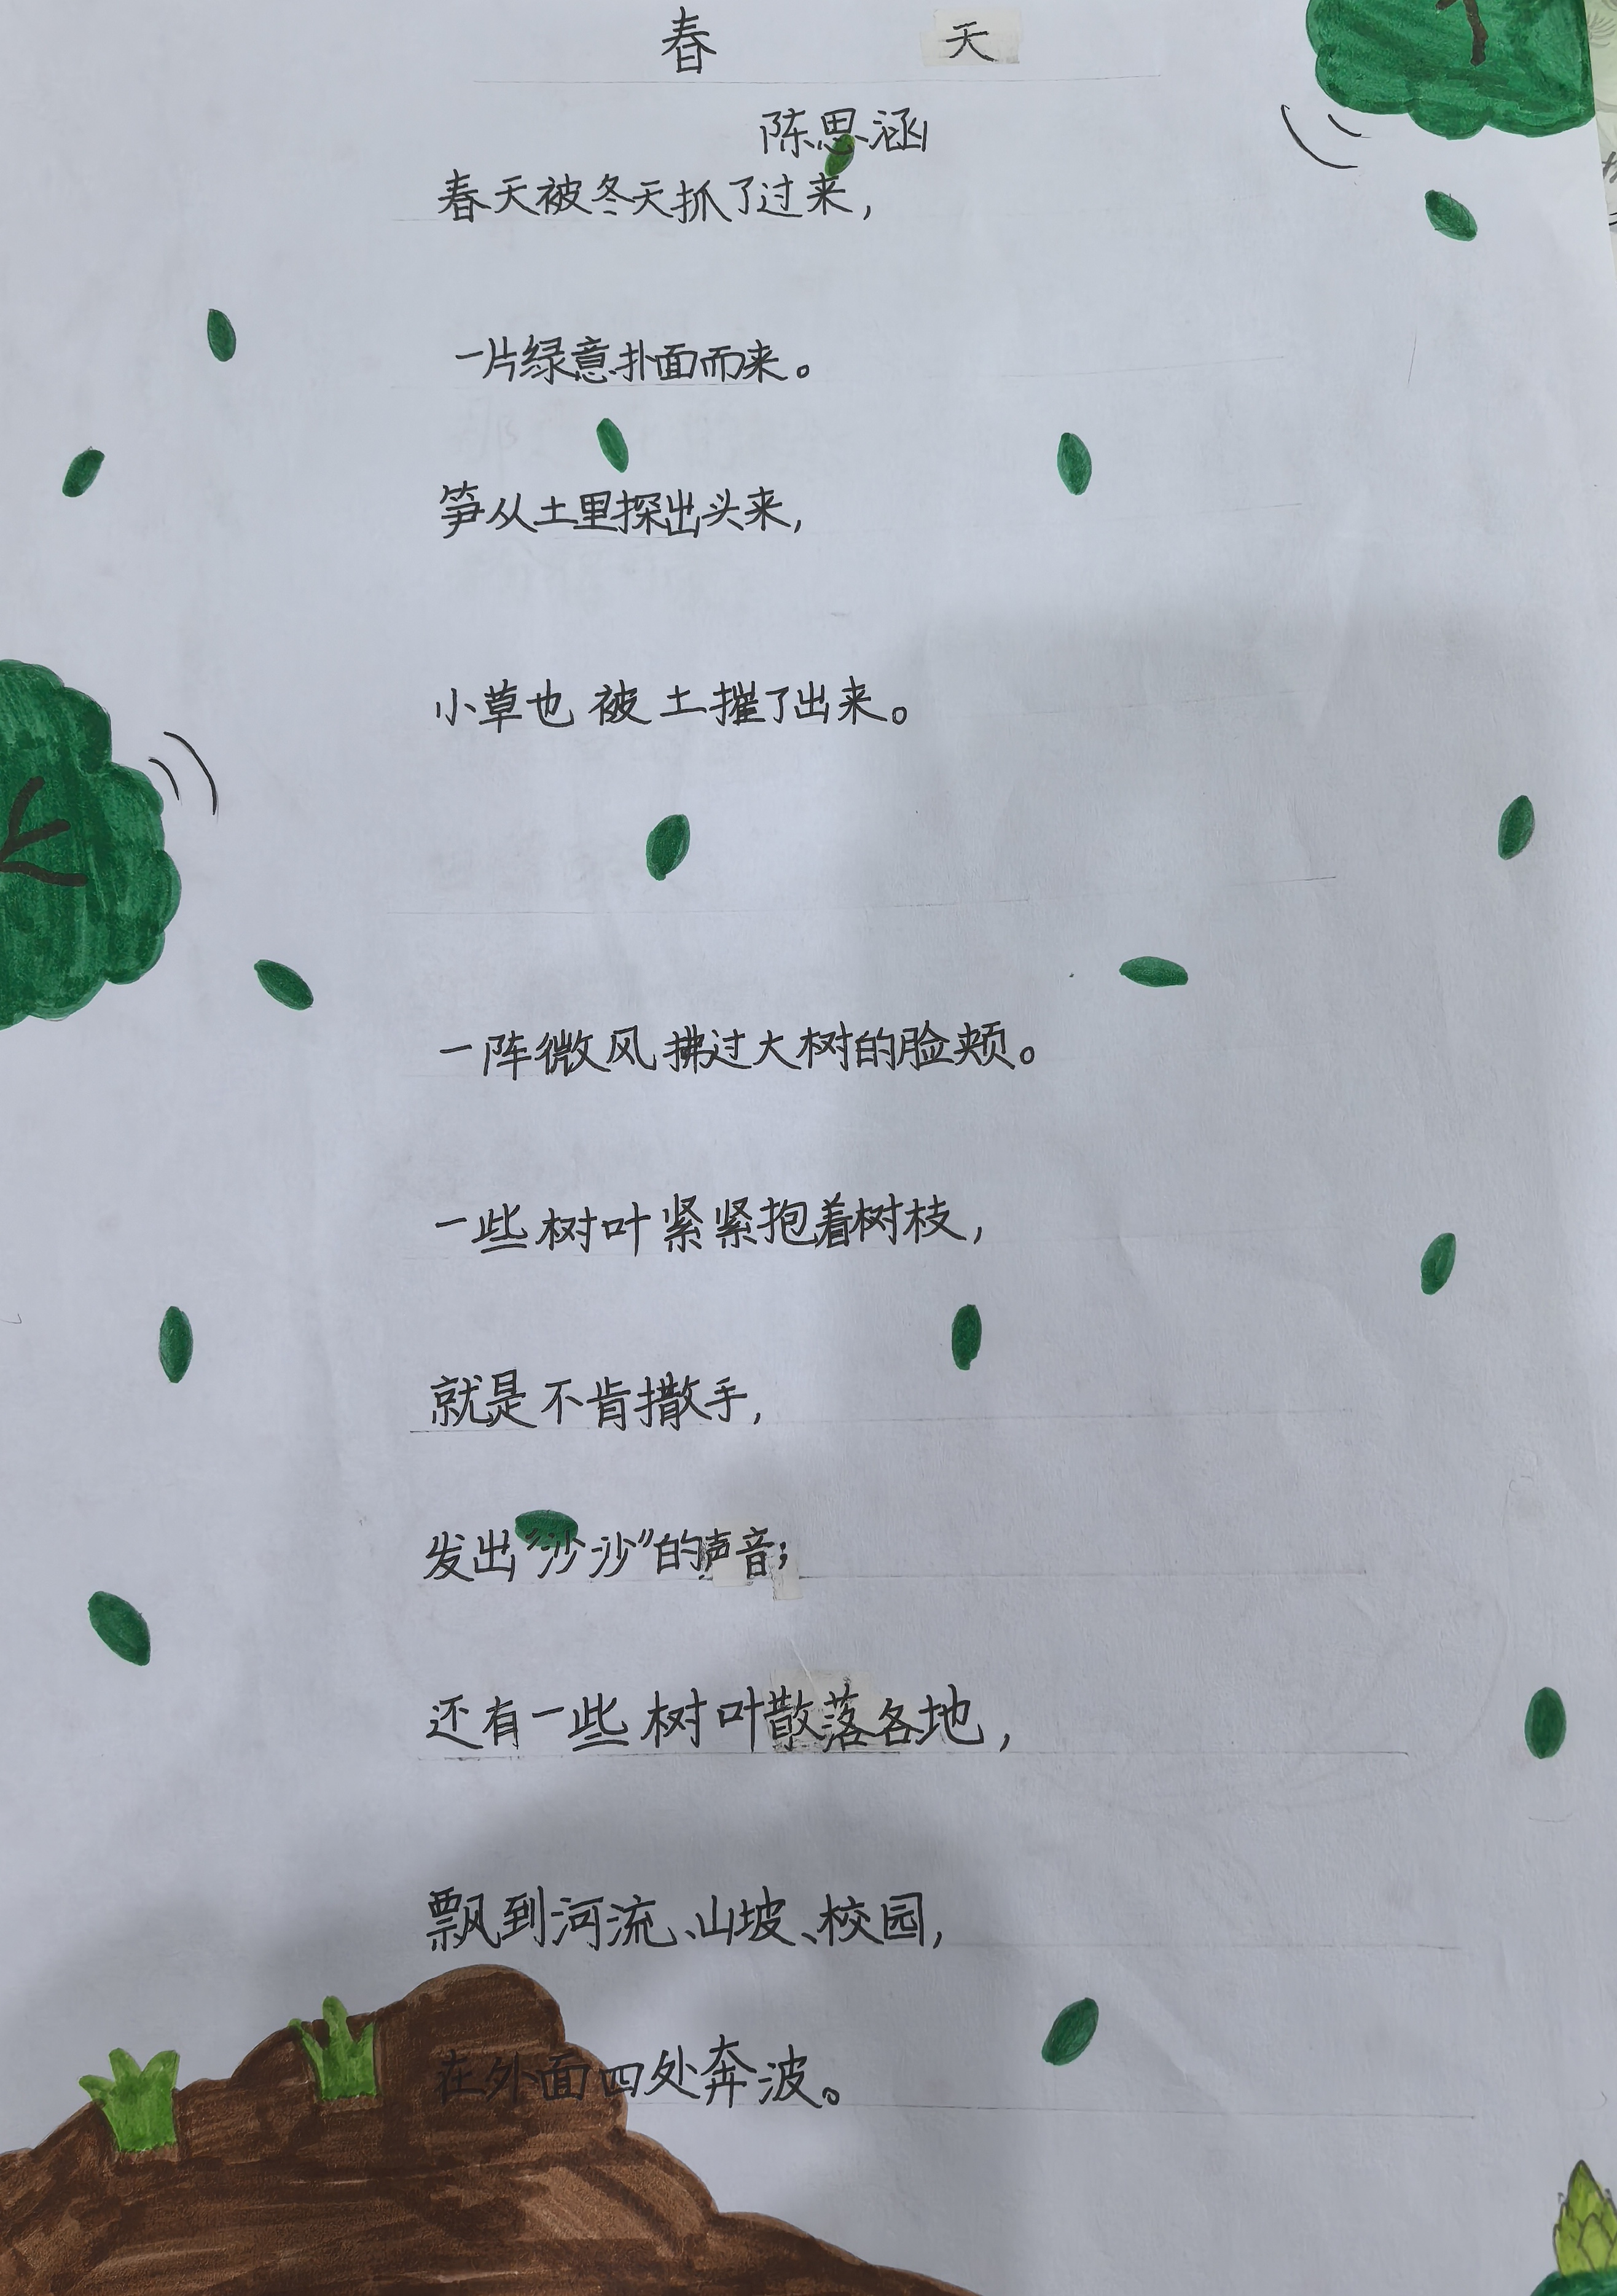 春 天
陈思涵
春天被冬天抓了过来，
一片绿意扑面而来。
笋从土里探出头来，
小草也被土摧了出来。
一阵微风拂过大树的脸颊。
一些树叶紧紧抱着树枝，
就是不肯撒手，
发出“沙沙”的声音；
还有一些树叶散落各地，
飘到河流、山坡、校园，
在外面四处奔波。